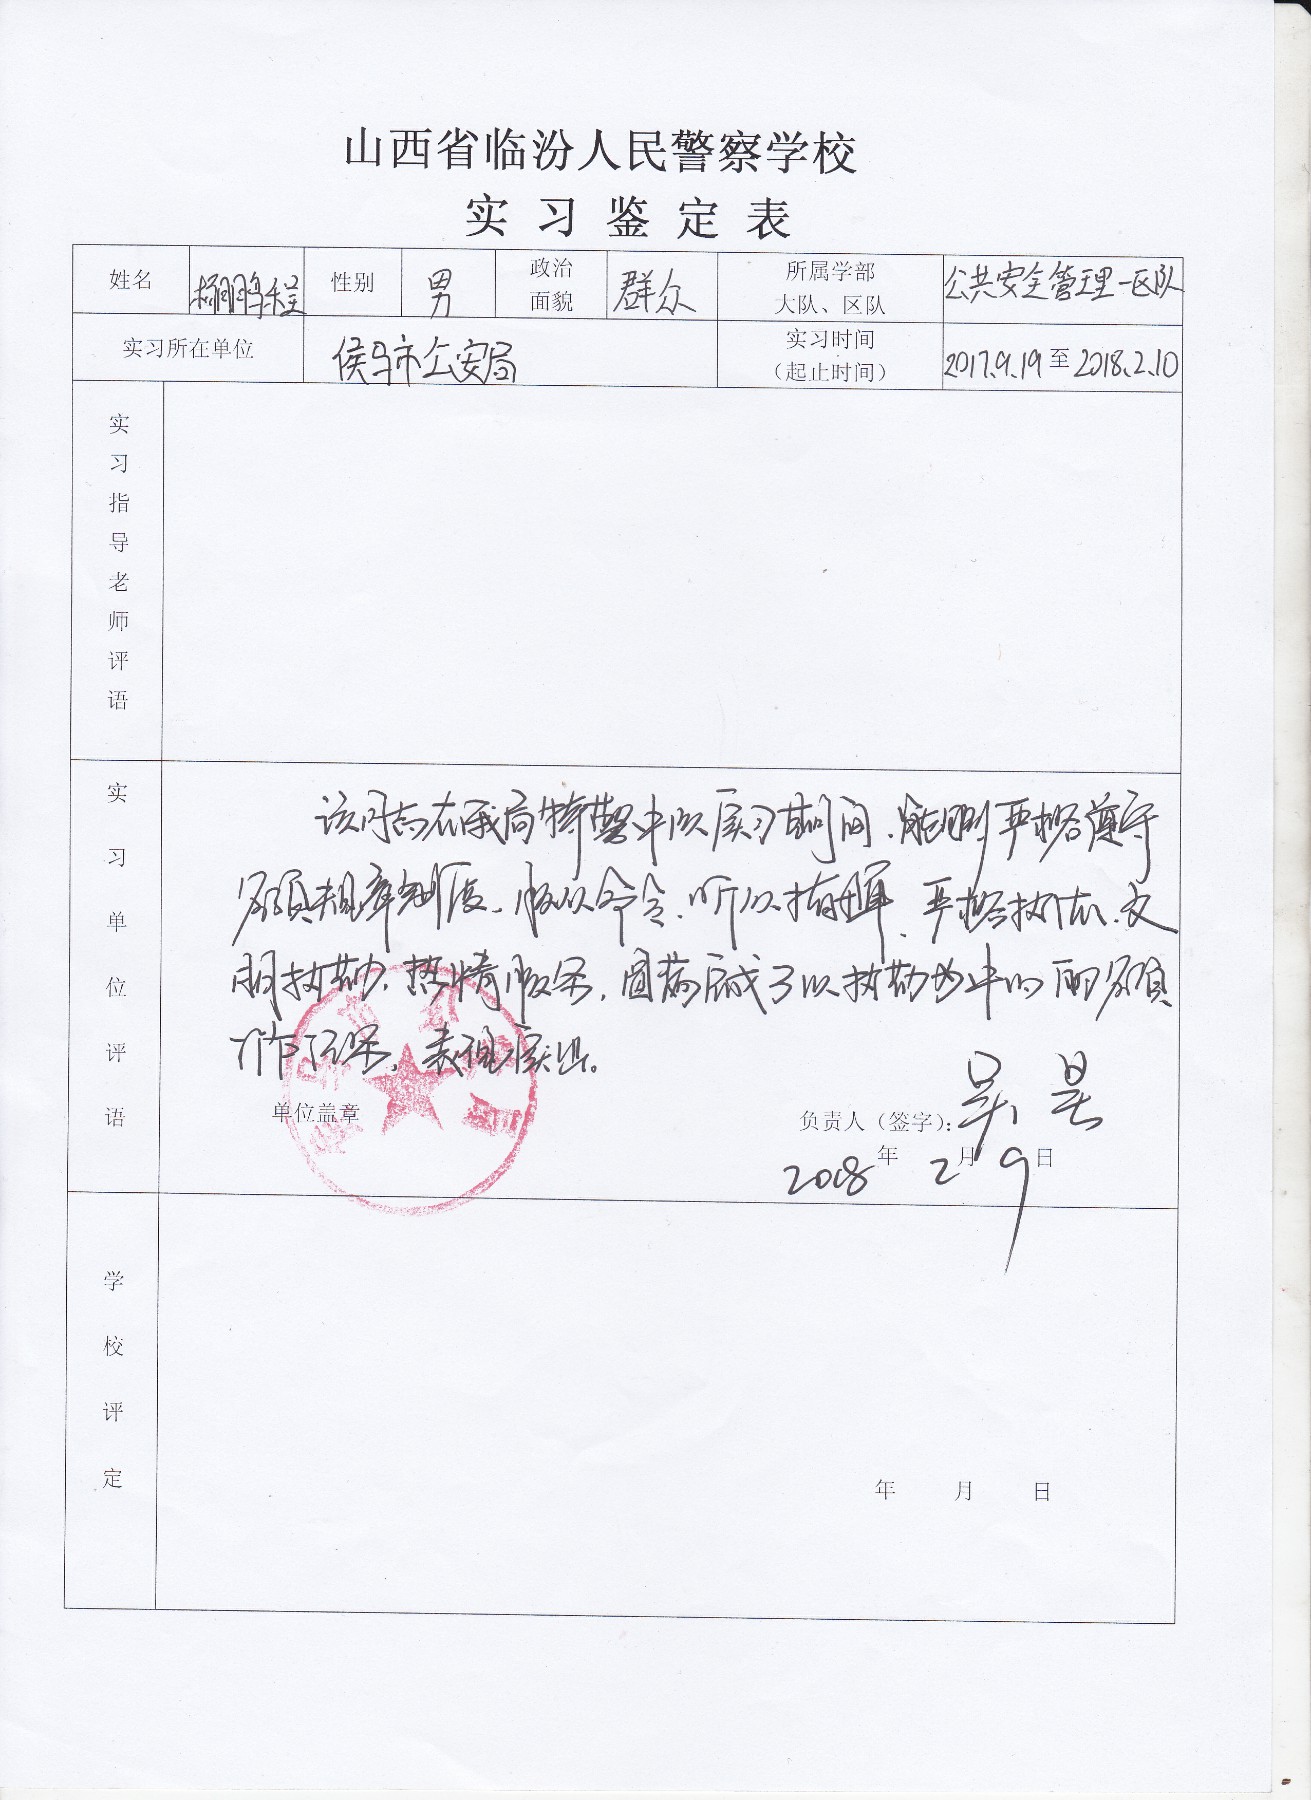 山西省临汾人民警察学校
实习鉴定表
姓名 杨鹏程 性别 男 政治面貌 群众 所属学部大队、区队 公共安全管理一区队
实习所在单位 侯马市公安局 实习时间（起止时间） 2017.9.19至2018.2.10
实习指导老师评语
实习单位评语
该同志在我局特警中队实习期间，能够严格遵守
各项规章制度，服从命令、听从指挥、严格执法、文
明执勤、热情服务，圆满完成了以执勤为中心的各项
工作任务，表现突出。
单位盖章
负责人（签字）：吴昊
2018年2月9日
学校评定
年 月 日